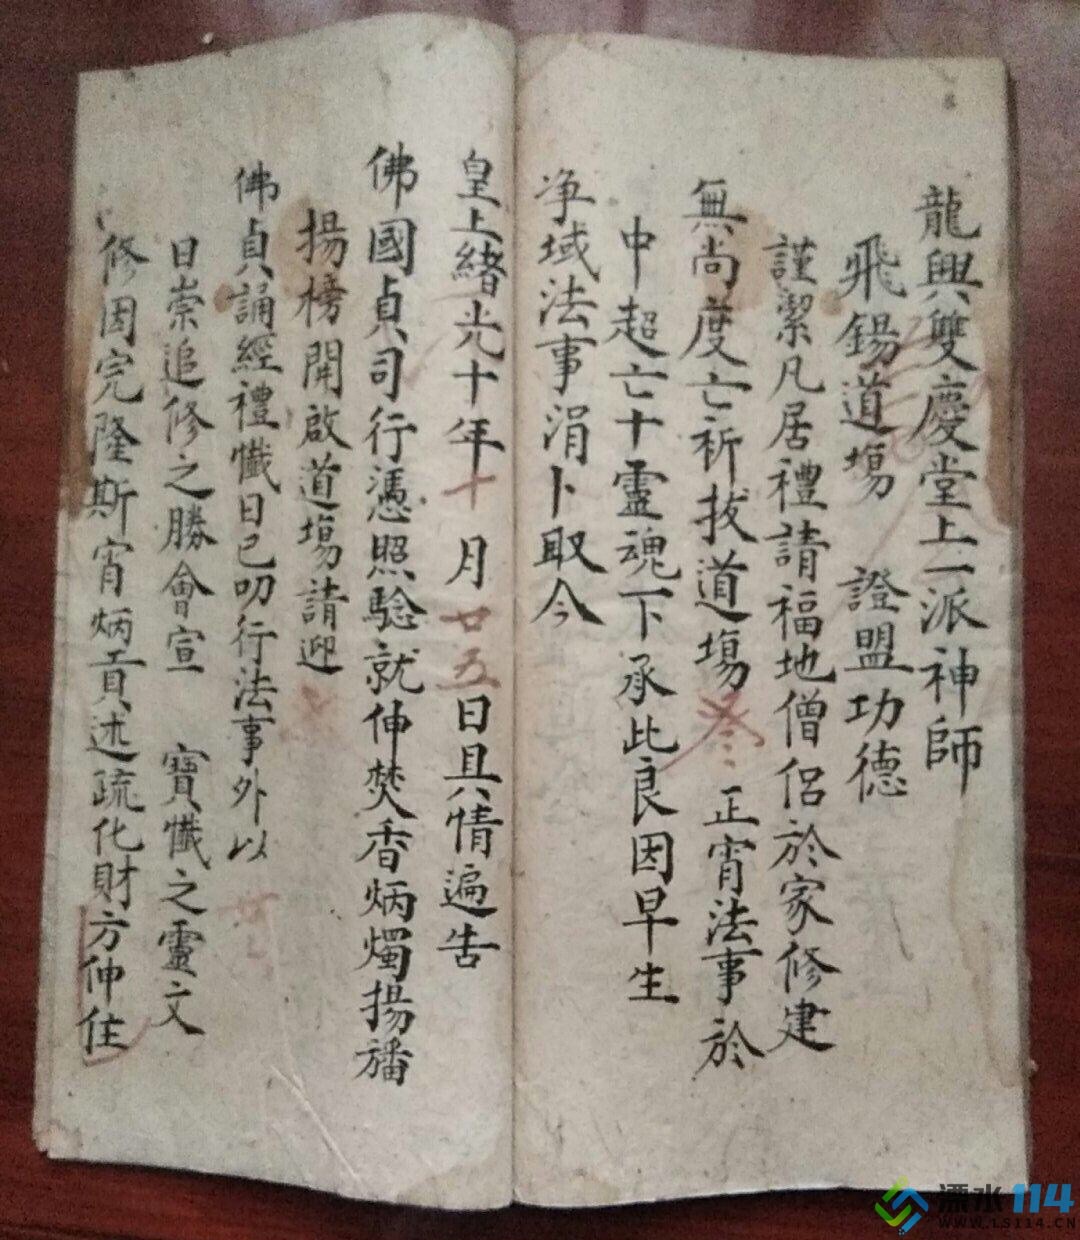 龍興雙慶堂上一派神師
飛錫道塲 證盟功德
謹潔凡居禮請福地僧侶於家修建
無尚度亡祈拔道塲 正宵法事於
中超亡十靈魂下承此良因早生
净域法事涓卜取今
皇上緒光十年十月廿五日具情遍告
佛國貞司行憑照騐就伸焚香炳燭揚旛
揚榜開啟道塲請迎
佛貞誦經禮懺日已叨行法事外以
日崇追修之勝會宣 寶懺之靈文
修因完隆斯宵炳貢述疏化財方伸住
溧水114
WWW.LS114.CN